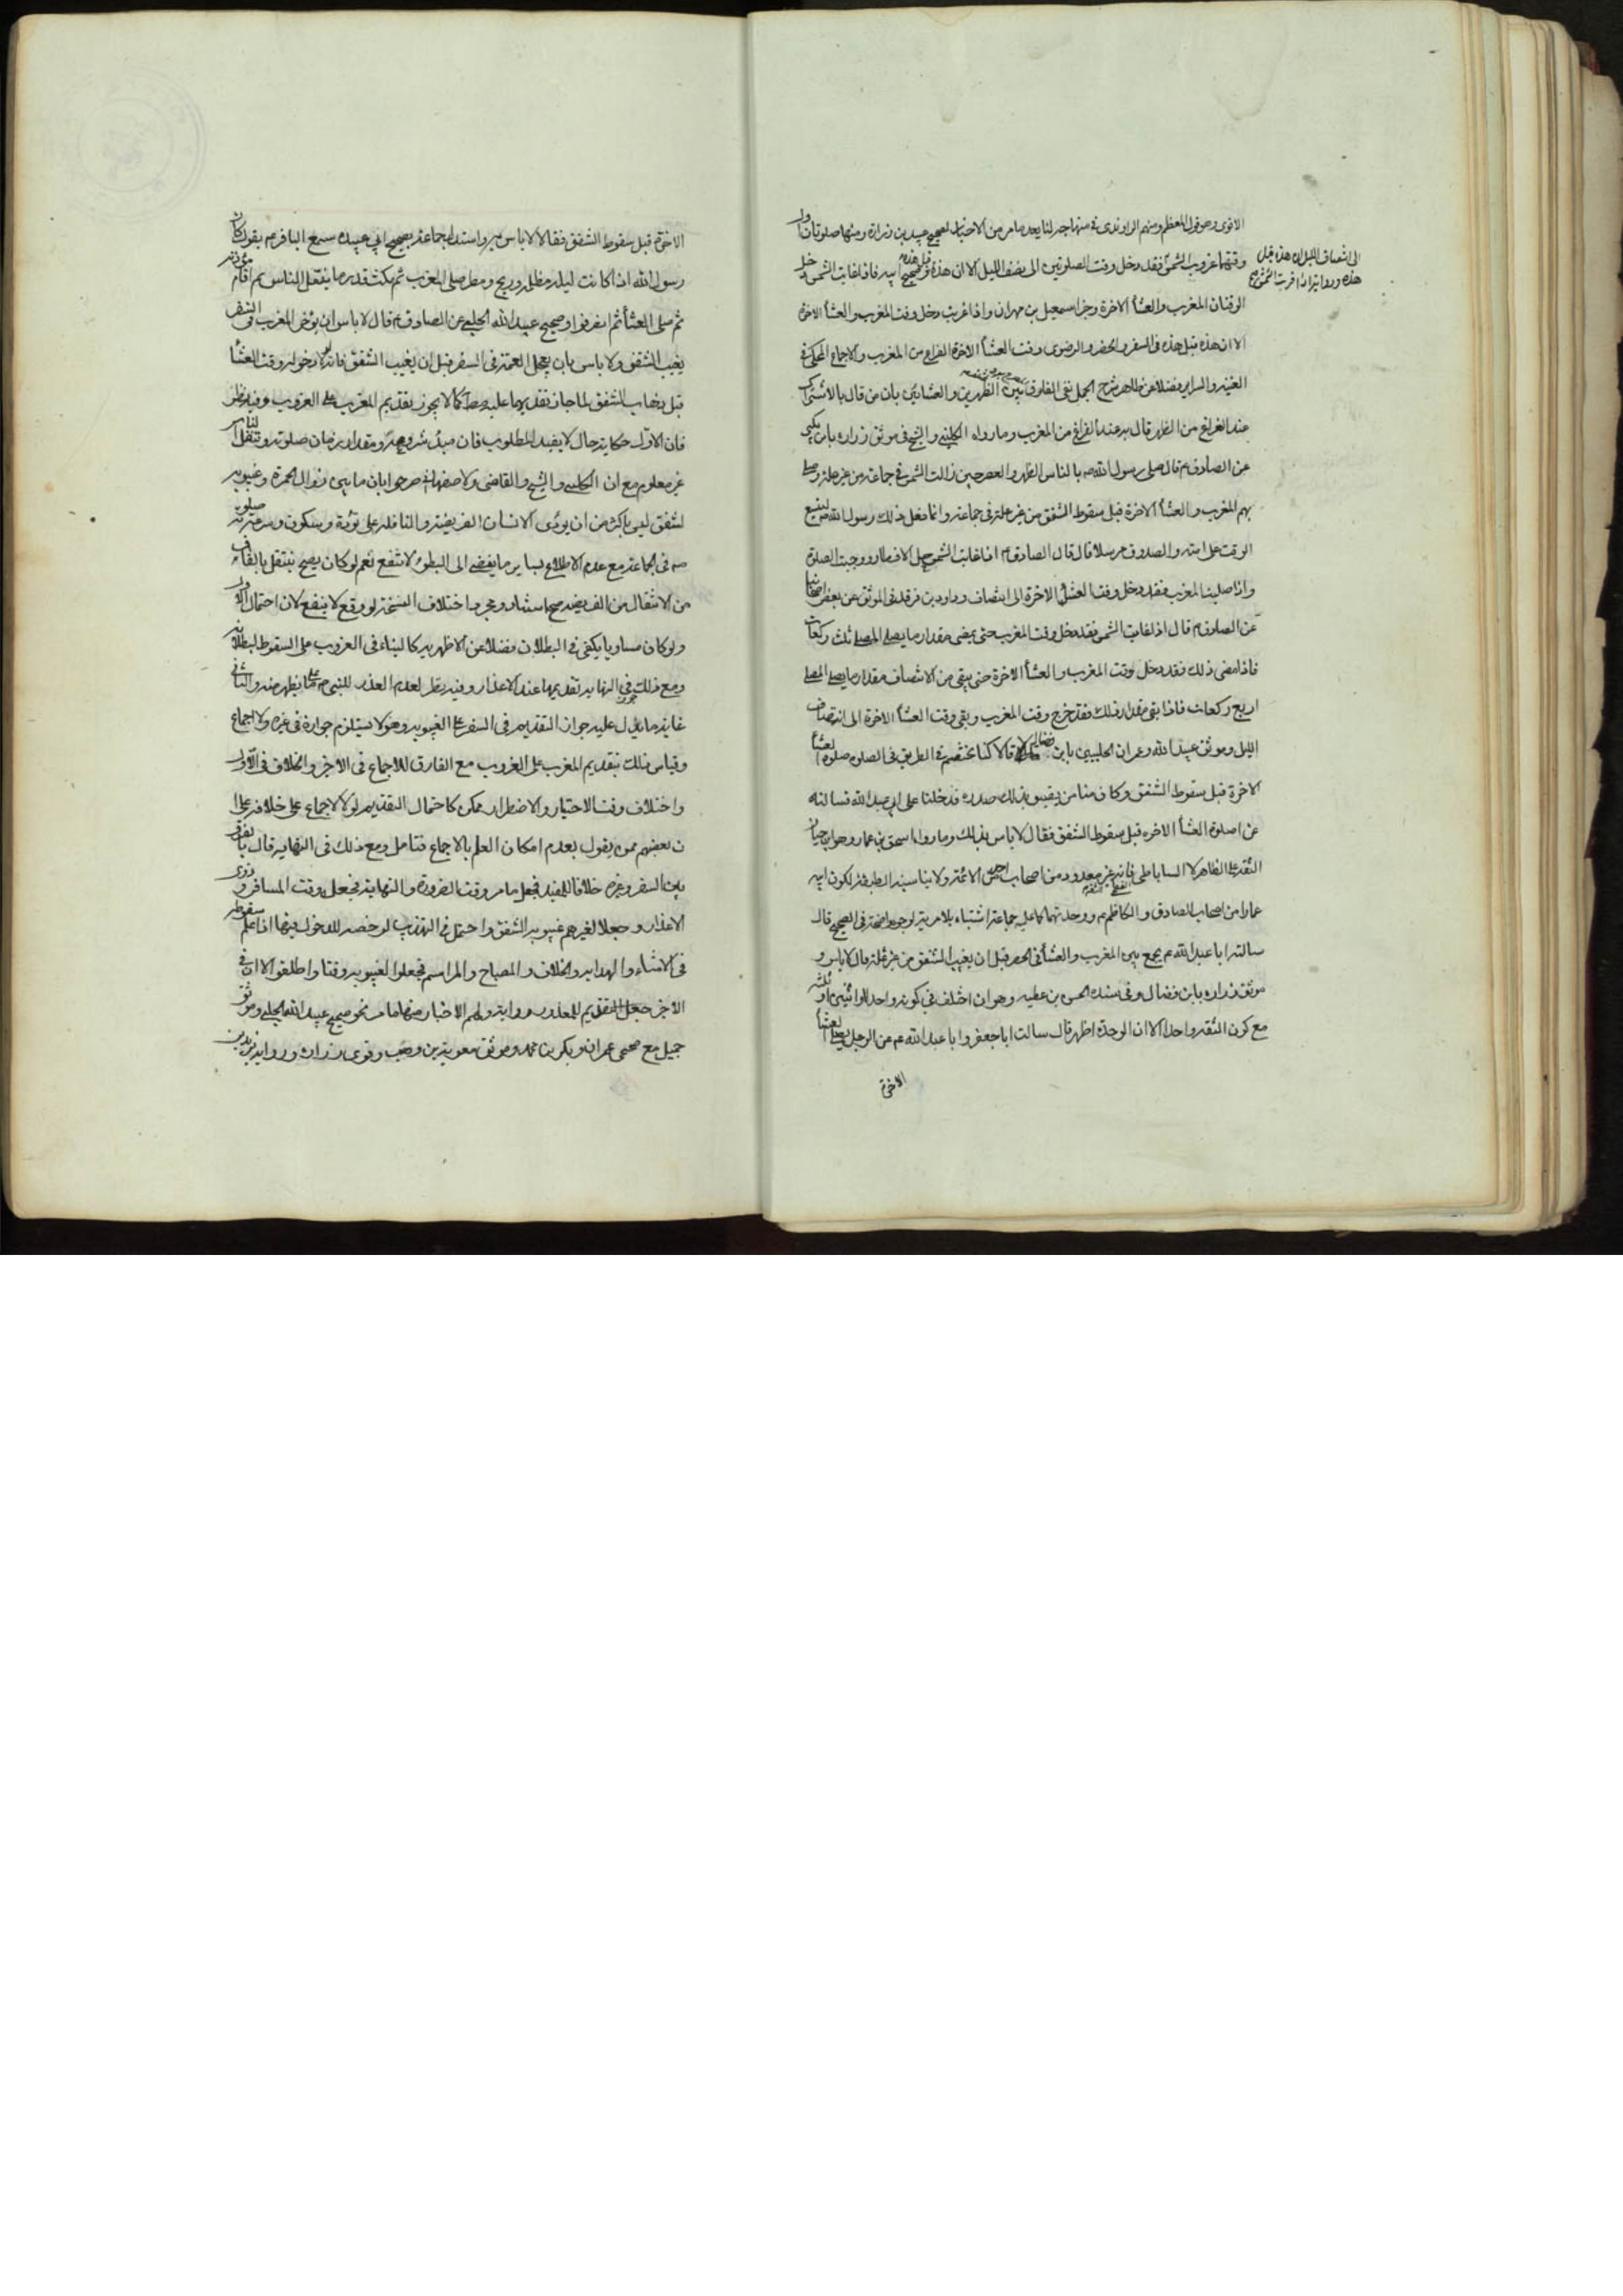 الاقوى وهو قول المعظم ومنهم الراوندى فى منهاجه لنا بعد ما مر من الاخبار صحيح عبيد بن زرارة ومنها صلوتان اول
وقتهما غروب الشمس فقد دخل وقت الصلوتين الى نصف الليل الا ان هذه قبل هذه وصحيح فاذا غابت الشمس دخل
الى انتصاف الليل الا ان هذه قبل
هذه ورواية زرارة اذا غربت الشمس
الوقتان المغرب والعشاء الاخرة وخبر اسمعيل بن مهران واذا غربت دخل وقت المغرب والعشاء الاخرة
الا ان هذه قبل هذه فى السفر والحضر والرضوى وقت العشاء الاخرة الفراغ من المغرب والاجماع المحكى فى
الغنيه والسراير وفضلا عن ظاهر شرح الجمل نفى الفارق بين الظهرين والعشائين بان من قال بالاشتراك
عند الفراغ من الظهر قال به عند الفراغ من المغرب وما رواه الكلينى والشيخ فى موثق زراره بابن بكير
عن الصادق م قال صلى رسول الله ص بالناس الظهر والعصر حين زالت الشمس فى جماعة من غير علة وصلى
بهم المغرب والعشاء الاخرة قبل سقوط الشفق من غير علة فى جماعة وانما فعل ذلك رسول الله ص ليتسع
الوقت على امته والصدوق مرسلا قال قال الصادق م اذا غابت الشمس حل الافطار ووجبت الصلوة
واذا صليت المغرب فقد دخل وقت العشاء الاخرة الى انتصاف وداود بن فرقد فى الموثق عن بعض اصحابنا
عن الصادق م قال اذا غابت الشمس فقد دخل وقت المغرب حتى يمضى مقدار ما يصلى المصلى ثلث ركعات
فاذا مضى ذلك فقد دخل وقت المغرب والعشاء الاخرة حتى يبقى من الانتصاف مقدار ما يصلى المصلى
اربع ركعات فاذا بقى مقدار ذلك فقد خرج وقت المغرب وبقى وقت العشاء الاخرة الى انتصاف
الليل وموثق عبيد الله وعمران الحلبيين بابن فضال قالا كنا نختصم فى الطريق فى الصلوه صلوة العشاء
الاخرة قبل سقوط الشفق وكان منا من يضيق بذلك صدره فدخلنا على ابى عبد الله فسالناه
عن صلوة العشاء الاخره قبل سقوط الشفق فقال لا باس بذلك وما رواه اسحق بن عمار وهو ابن حيان
الثقة على الظاهر لا الساباطى فانه غير معدود من اصحاب احد من الائمة ولا يناسبه الطبقة لكون ابيه
عمارا من اصحاب الصادق والكاظم م ووحدتهما كما عليه جماعة اشتباه بلا مرية لوجوه واضحة فى الصحيح قال
سالت ابا عبد الله م يجمع بين المغرب والعشاء فى الحضر قبل ان يغيب الشفق من غير علة قال لا باس و
موثق زراره بابن فضال وفى سنده الحسن بن عطيه وهو ان اختلف فى كونه واحدا او اثنين او ثلثه
مع كون الثقة واحدا الا ان الوحدة اظهر قال سالت ابا جعفر وابا عبد الله م عن الرجل يصلى العشاء
الاخرة
الاخرة قبل سقوط الشفق فقالا لا باس به واستدل جماعة بصحيح ابى عبيده سمع الباقر م يقول كان
رسول الله اذا كانت ليلة مظلمة وريح ومطر صلى المغرب ثم مكث قدر ما يتنفل الناس ثم اقام مؤذنه
ثم صلى العشاء ثم انصرفوا وصحيح عبيد الله الحلبى عن الصادق م قال لا باس ان يؤخر المغرب فى السفر
يغيب الشفق ولا باس بان يعجل العتمة فى السفر قبل ان يغيب الشفق فانه لولا دخول وقت العشاء
قبل ذهاب الشفق لما جاز تقديمها عليه مط كما لا يجوز تقديم المغرب على الغروب وفيه نظر
فان الاول حكاية حال لا يفيد المطلوب فان مبدء شروعه ومقدار زمان صلوته وتنفل الناس
غير معلوم مع ان الكلينى والشيخ والقاضى والاصفهانى صرحوا بان ما بين زوال الحمرة وغيبوبة
الشفق ليس باكثر من ان يؤدى الانسان الفريضة والنافلة على تؤدة وسكون وسرعة صلوته
ص فى الجماعة مع عدم الاطلاع بساير ما يفضى الى البطوء لا تنفع نعم لو كان يصح يتنفل بالفاء
من الانتقال من الف يصح استناد ومجرد اختلاف النسخة لو وقع لا ينفع لان احتمال الاول
ولو كان مساويا يكفى فى البطلان فضلا عن الاظهريه كالبناء فى الغروب على السقوط لبطلانه
ومع ذلك فى النهايه تقديمها عند الاعذار وفيه نظر لعدم العذر للنبى ص مما يظهر منه والثانى
غاية ما يدل عليه جواز التقديم فى السفر على الغيبوبه وهو لا يستلزم جوازه فى غيره ولا اجماع
وقياس ذلك بتقديم المغرب على الغروب مع الفارق للاجماع فى الاخر والخلاف فى الاول
واختلاف وقت الاختيار والاضطرار ممكن كاحتمال التقديم لولا الاجماع على خلافه على ا
ن بعضهم ممن يقول بعدم امكان العلم بالاجماع فتامل ومع ذلك فى النهايه قال بالفرق
بين السفر وغيره خلافا للمفيد فجعل ما مر وقت الضرورة والنهاية فجعله وقت المسافر وذوى
الاعذار وجعلا لغيرهم غيبوبة الشفق واحتمل فى التهذيب لو خصه للدخول فيها اذا علم سقوطه
فى الاثناء والهدايه والخلاف والمصباح والمراسم فجعلوا الغيبوبه وقتا واطلقوا الا ان فى
الاخر جعل التقديم للمعذور رواية ولهم الاخبار منها ما مر نحو صحيح عبيد الله الحلبى وموثق
جميل مع صحيحى عمران وبكر بن محمد وموثق معوية بن وهب وقوى زراره ورواية يزيد بن